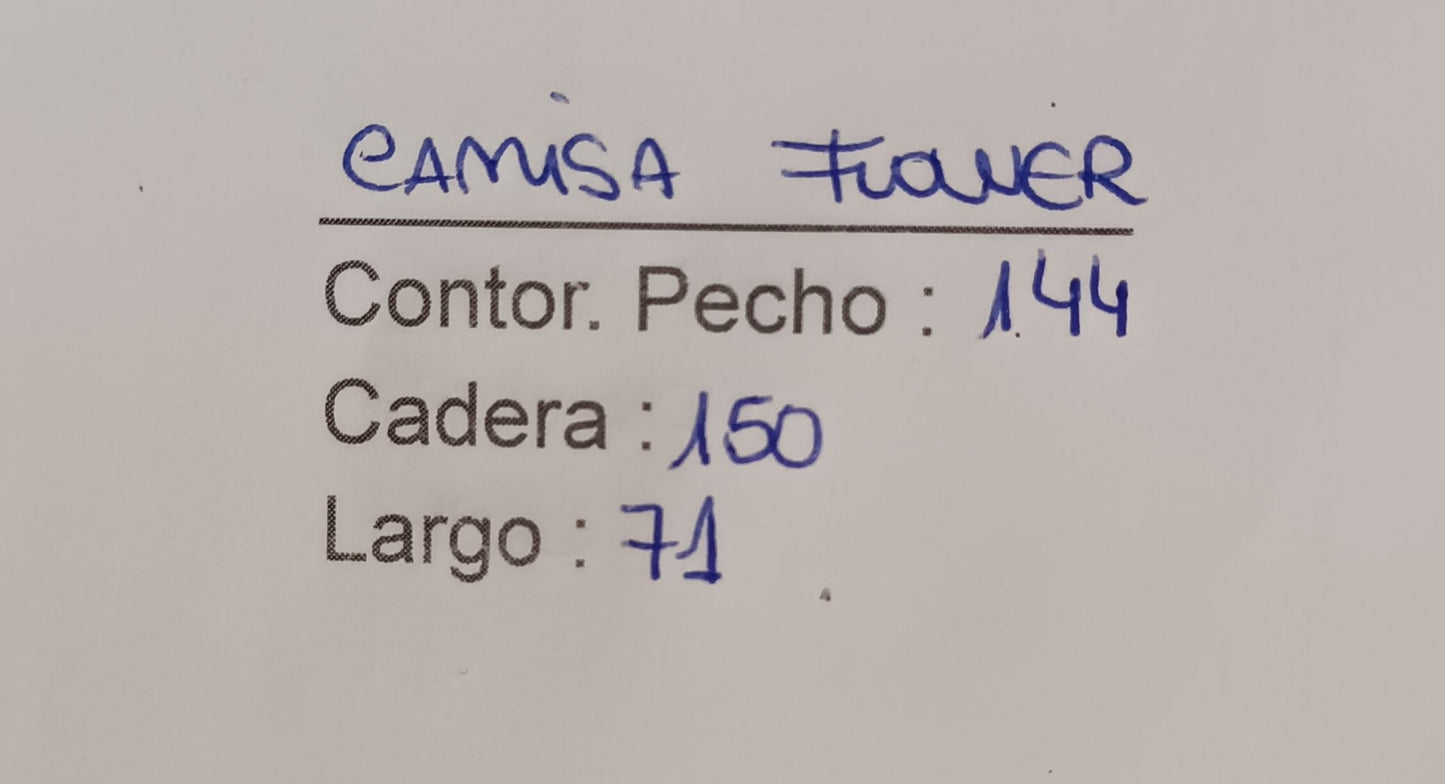 CAMISA FLOWER
Contor. Pecho : 1.44
Cadera : 150
Largo : 71